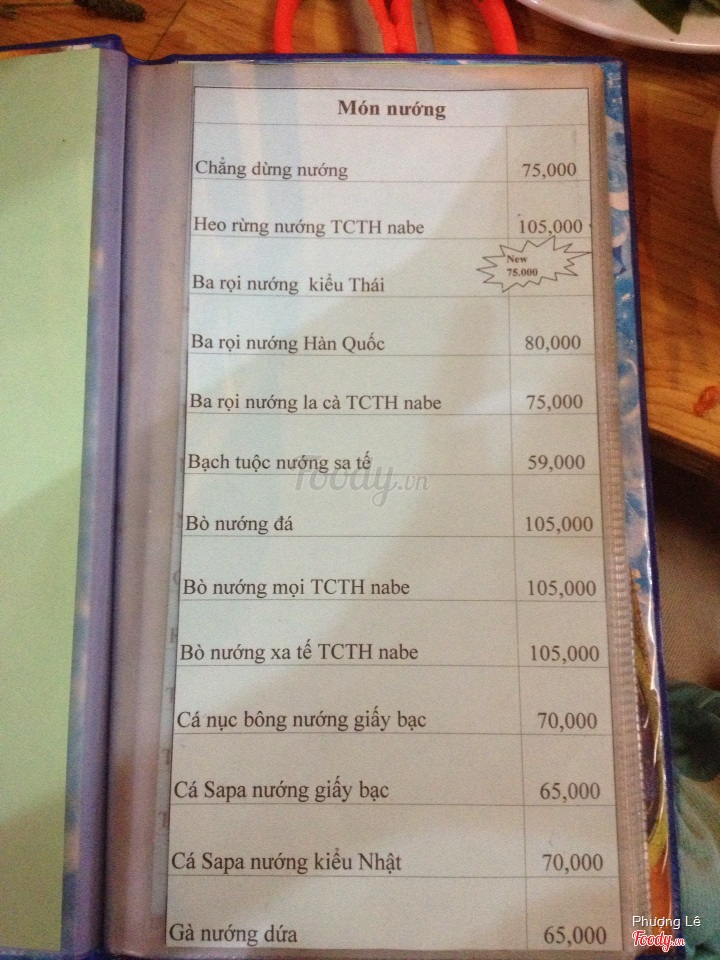 Món nướng
Chẳng dừng nướng 75,000
Heo rừng nướng TCTH nabe 105,000
New
75.000
Ba rọi nướng kiểu Thái
Ba rọi nướng Hàn Quốc 80,000
Ba rọi nướng la cà TCTH nabe 75,000
Bạch tuộc nướng sa tế 59,000
Foody.vn
Bò nướng đá 105,000
Bò nướng mọi TCTH nabe 105,000
Bò nướng xa tế TCTH nabe 105,000
Cá nục bông nướng giấy bạc 70,000
Cá Sapa nướng giấy bạc 65,000
Cá Sapa nướng kiểu Nhật 70,000
Gà nướng dứa 65,000
Phượng Lê
Foody.vn